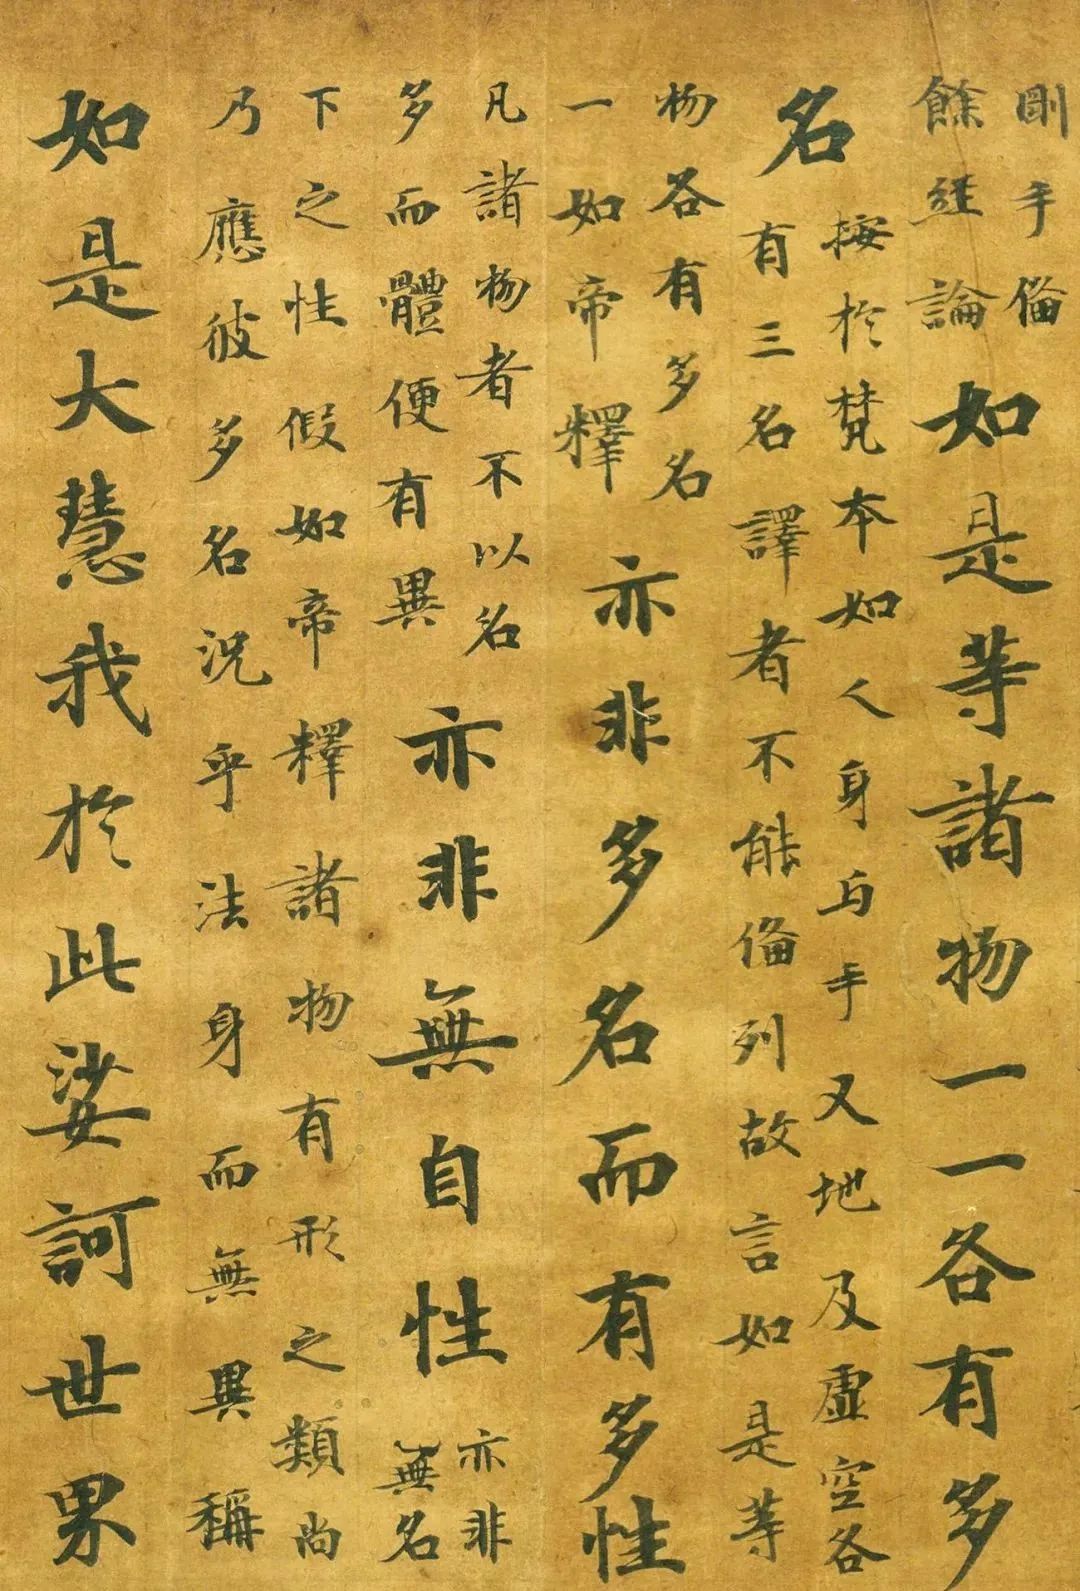 剛手偹
餘経論
如是等諸物一一各有多
名
按於梵本如人身与手又地及虚空各
有三名譯者不能偹列故言如是等
物各有多名
一如帝釋
亦非多名而有多性
凡諸物者不以名
多而體便有異
亦非無自性
亦非
無名
下之性假如帝釋諸物有形之類尚
乃應彼多名況乎法身而無異稱
如是大慧我於此娑訶世界